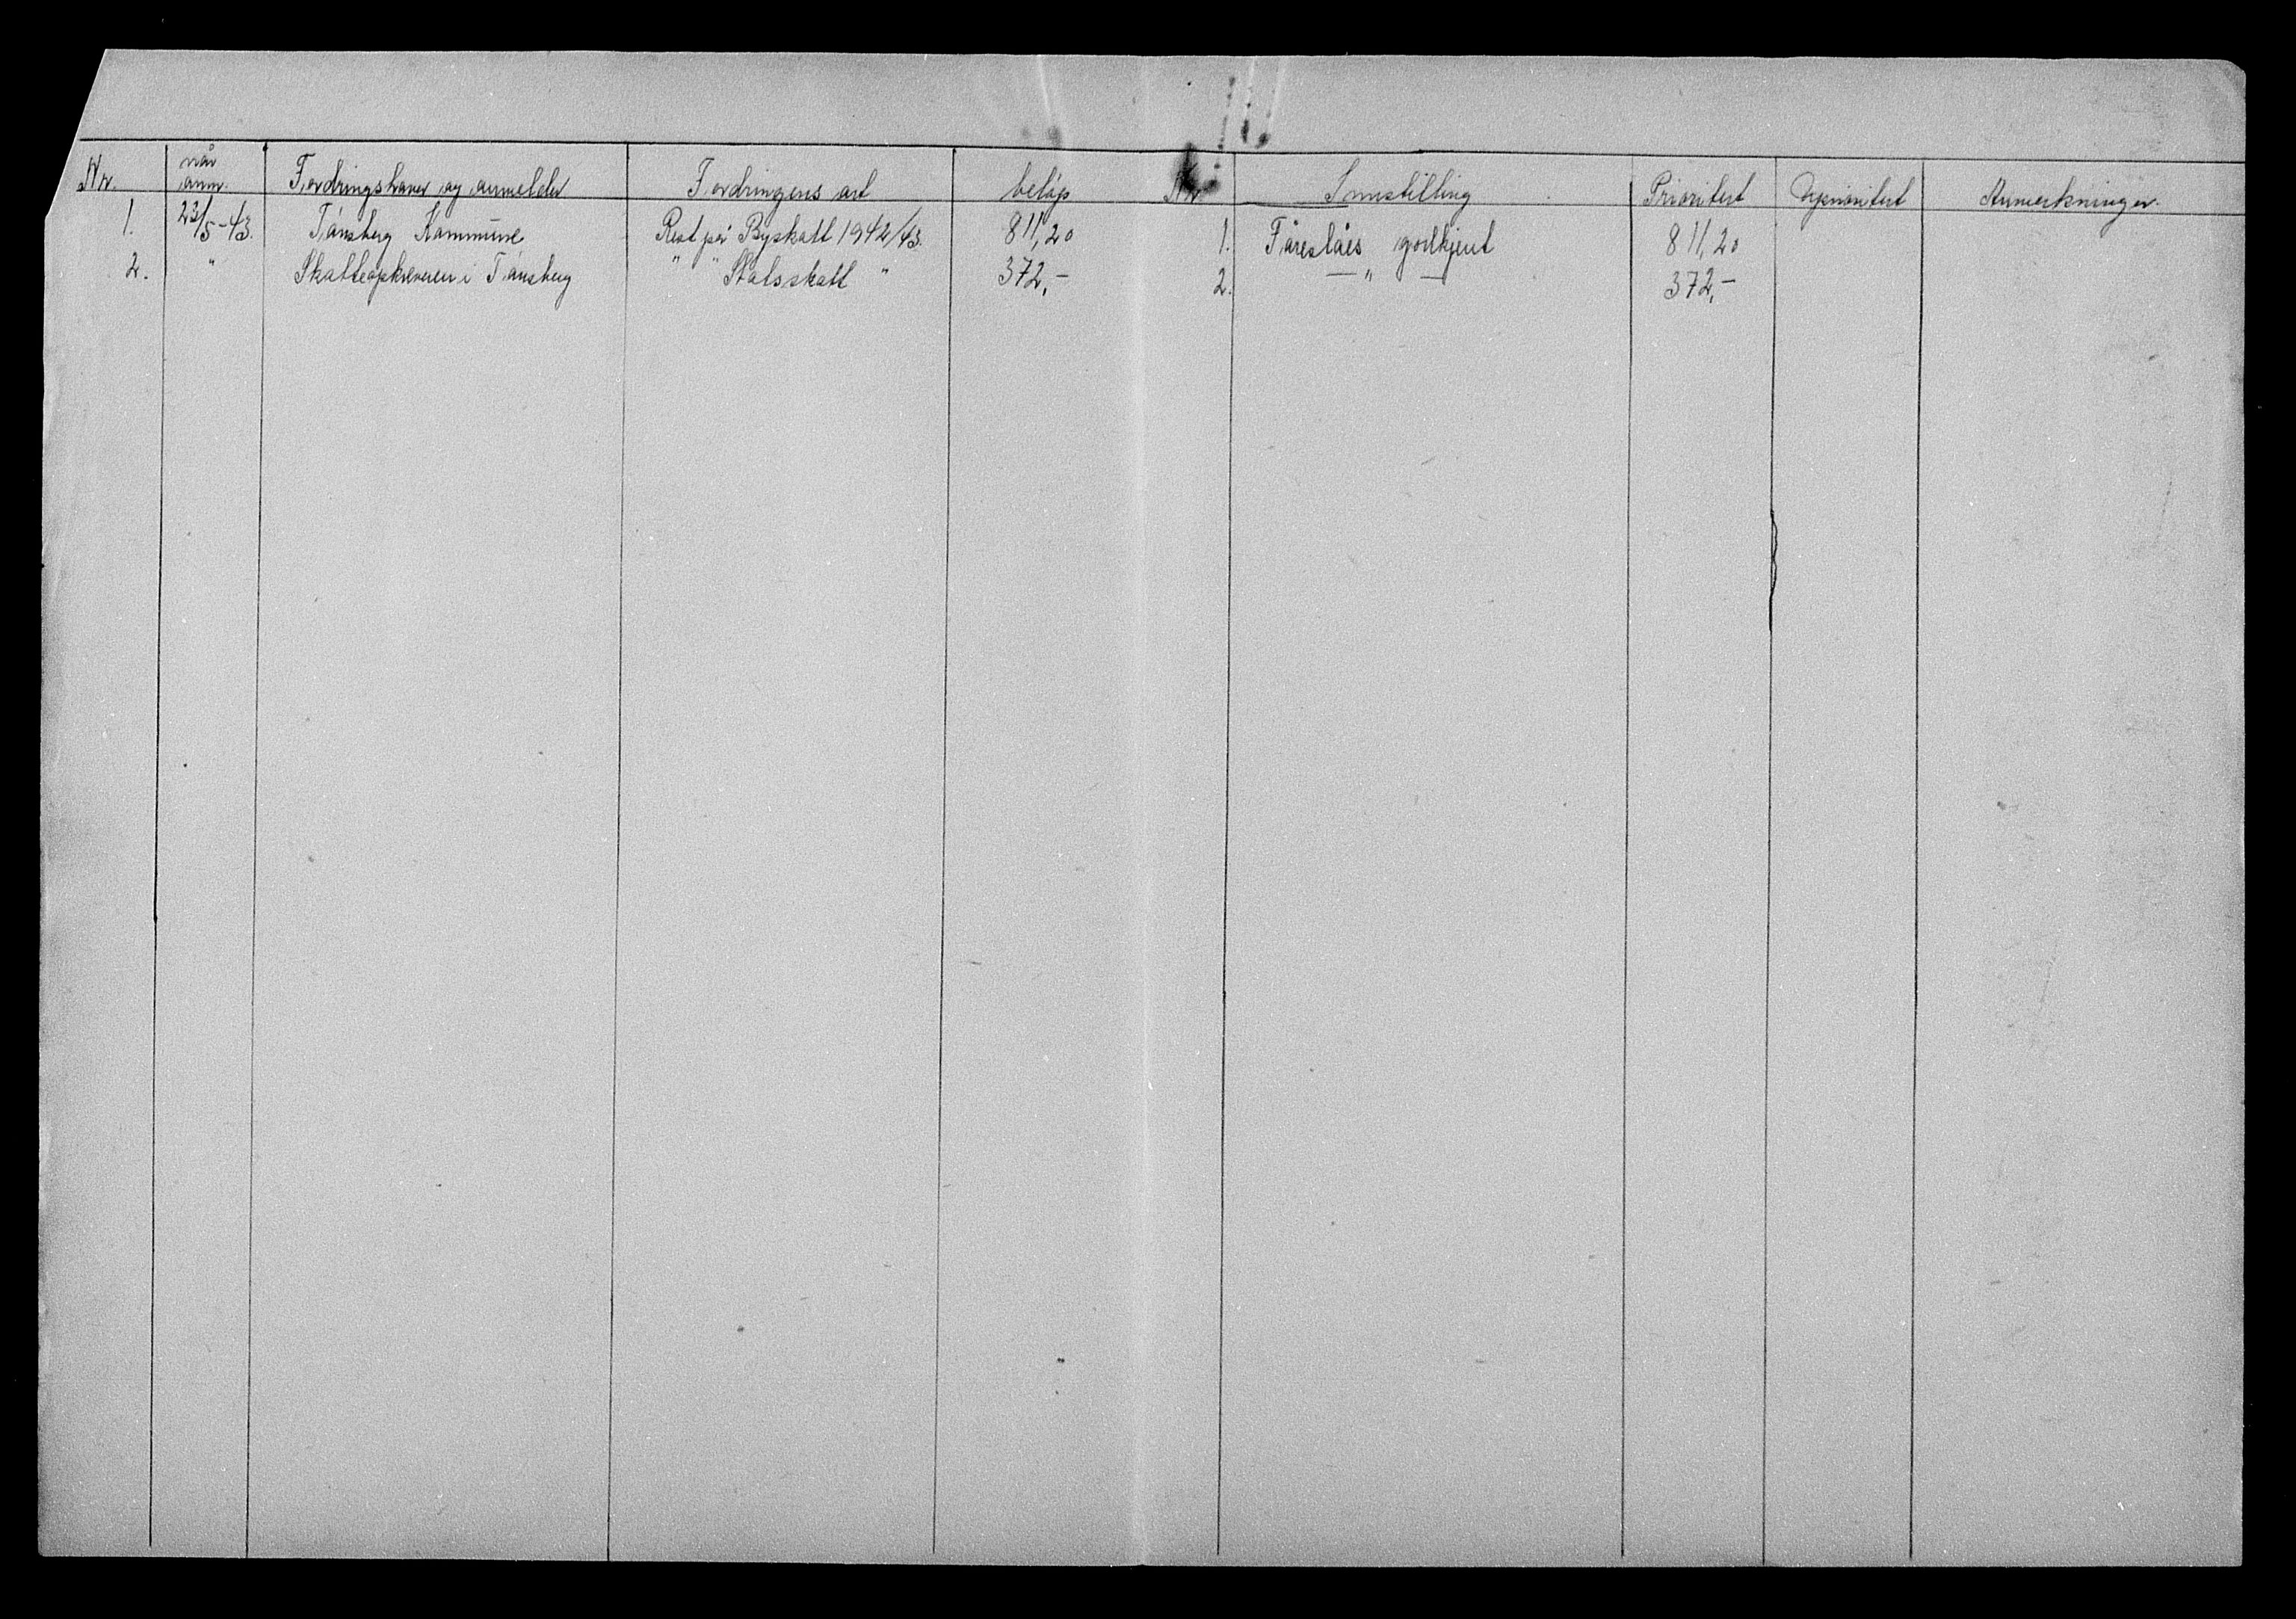 Nr. når anm. Fordringshaver og anmelder Fordringens art beløp Nr. Innstilling Prioritert Uprioritert Anmerkninger.
1. 23/5-43. Tønsberg Kommune Rest på Byskatt 1942/43. 811,20 1. Foreslåes godkjent 811,20
2. " Skatteopkreveren i Tønsberg " " Statsskatt " 372,- 2. — " — 372,-